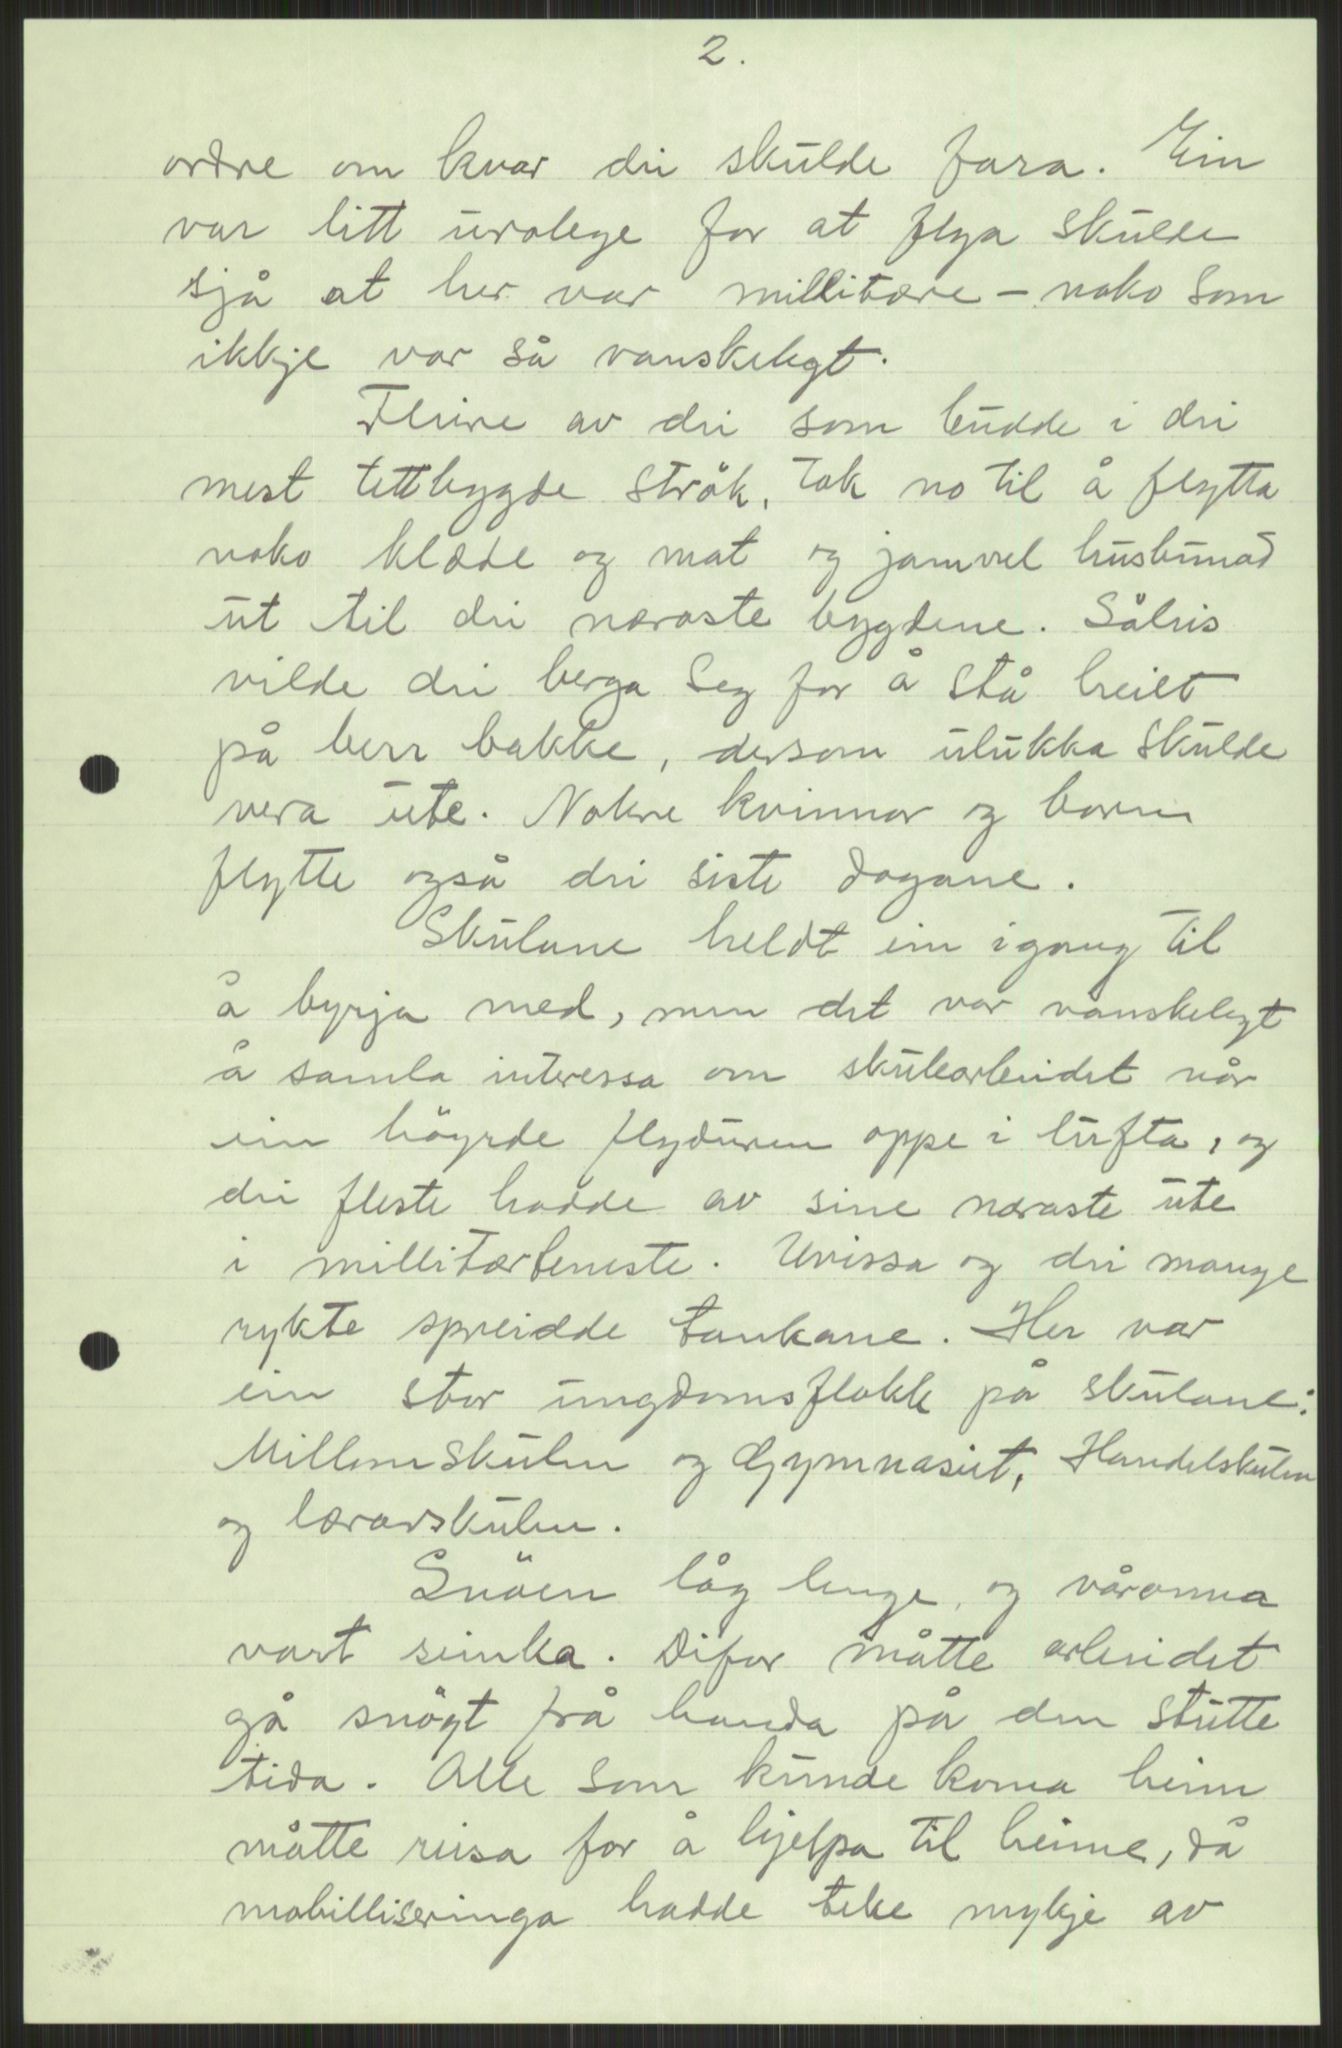 2.
ordre om kvar dei skulde fara. Ein
var litt urolege for at flya skulde
sjå at her var millitære – noko som
ikkje var så vanskelegt.
Fleire av dei som budde i dei
mest tettbygde strök, tok no til å flytta
noko klæde og mat og jamvel husbunad
ut til dei næraste bygdene. Såleis
vilde dei berga seg for å stå heilt
på berr bakke, dersom ulukka skulde
vera ute. Nokre kvinnor og born
flytte også dei siste dagane.
Skulane heldt ein igang til
å byrja med, men det var vanskelegt
å samla interessa om skulearbeidet når
ein höyrde flyduren oppe i lufta, og
dei fleste hadde av sine næraste ute
i millitærteneste. Uvissa og dei mange
rykte spreidde tankane. Her var
ein stor ungdomsflokk på skulane:
Millomskulen og Gymnasiet, Handelskulen
og lærarskulen.
Snöen låg lenge, og våronna
vart seinka. Difor måtte arbeidet
gå snögt frå handa på den stutte
tida. Alle som kunde koma heim
måtte reisa for å hjelpa til heime, då
mobilliseringa hadde teke mykje av